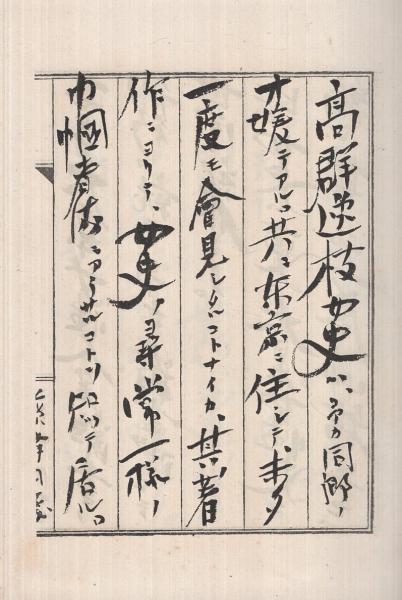 高群逸枝女史ハ、予カ同郷ノ
才媛テアル。共ニ東京ニ住シテ、未タ
一度モ會見シタルコトナイカ、其ノ著
作ニヨリテ、女史ノ尋常一樣ノ
巾幗者流ニアラサルコトヲ認メテ居ル。